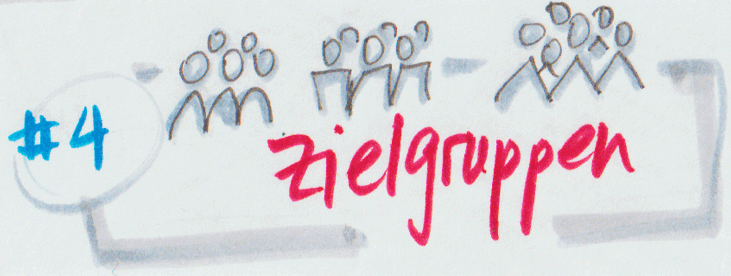 #4
Zielgruppen